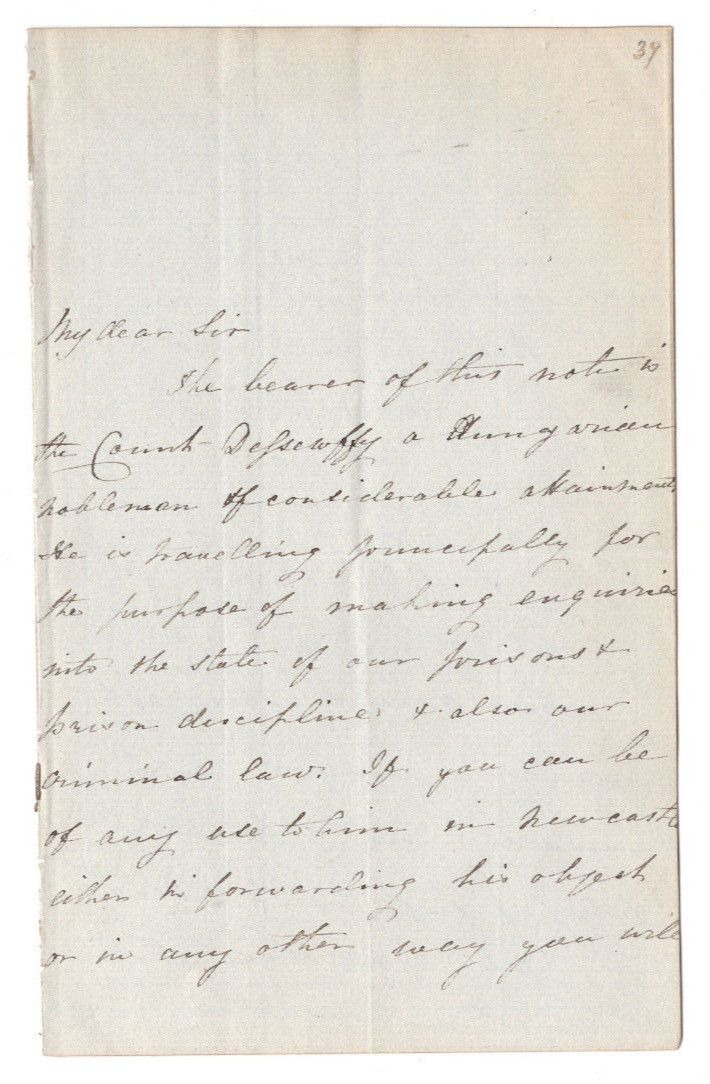 39
My dear Sir
The bearer of this note is
the Count Dessewffy a Hungarian
nobleman of considerable attainments.
He is travelling principally for
the purpose of making enquiries
into the state of our prisons &
prison discipline & also our
criminal law. If you can be
of any use to him in Newcastle
either in forwarding his object
or in any other way you will